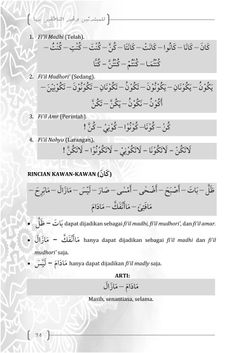 1. Fi'il Madhi (Telah).
كَانَ – كَانَا – كَانُوا – كَانَتْ – كَانَتَا – كُنَّ – كُنْتَ – كُنْتِ – كُنْتُ –
كُنْتُمَا – كُنْتُمْ – كُنْتُنَّ – كُنَّا
2. Fi'il Mudhori' (Sedang).
يَكُوْنُ – يَكُوْنَانِ – يَكُوْنُوْنَ – تَكُوْنُ – تَكُوْنَانِ – تَكُوْنُوْنَ – تَكُوْنِيْنَ –
أَكُوْنُ – نَكُوْنُ – يَكُنَّ – تَكُنَّ
3. Fi'il Amr (Perintah).
كُنْ – كُوْنَا – كُوْنُوْا – كُوْنِيْ – كُنَّ !
4. Fi'il Nahyu (Larangan).
لَاتَكُنْ – لَاتَكُوْنَا – لَاتَكُوْنِيْ – لَاتَكُوْنُوْا – لَاتَكُنَّ !
RINCIAN KAWAN-KAWAN (كَانَ)
ظَلَّ – بَاتَ – أَصْبَحَ – أَضْحَى – أَمْسَى – صَارَ – لَيْسَ – مَازَالَ – مَابَرِحَ –
مَافَتِئَ – مَاانْفَكَّ – مَادَامَ
• ظَلَّ – بَاتَ dapat dijadikan sebagai fi'il madhi, fi'il mudhori', dan fi'il amar.
• مَازَالَ – مَاانْفَكَّ hanya dapat dijadikan sebagai fi'il madhi dan fi'il
mudhori' saja.
• لَيْسَ – مَادَامَ hanya dapat dijadikan fi'il madly saja.
ARTI:
مَازَالَ – مَادَامَ
Masih, senantiasa, selama.
14